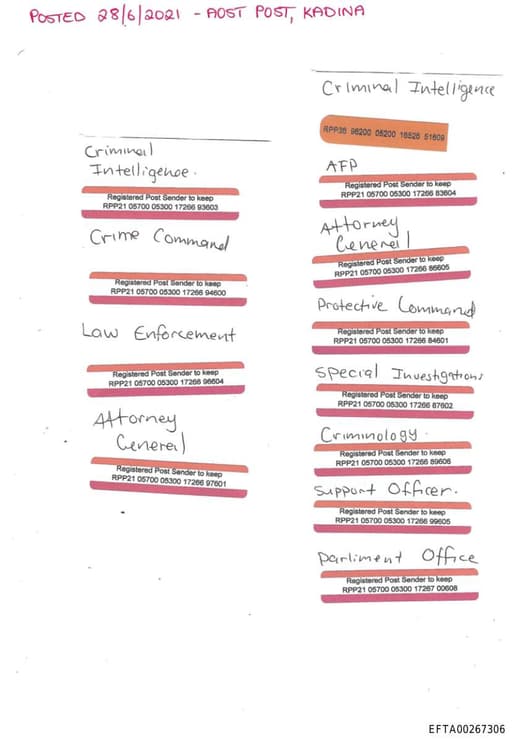 POSTED 28/6/2021 - AOST POST, KADINA
Criminal
Intelligence.
Registered Post Sender to keep
RPP21 05700 05300 17266 93603
Crime Command
Registered Post Sender to keep
RPP21 05700 05300 17266 94600
Law Enforcement
Registered Post Sender to keep
RPP21 05700 05300 17266 96604
Attorney
General
Registered Post Sender to keep
RPP21 05700 05300 17266 97601
Criminal Intelligence
RPP36 96200 05200 16526 51609
AFP
Registered Post Sender to keep
RPP21 05700 05300 17266 83604
Attorney
General
Registered Post Sender to keep
RPP21 05700 05300 17266 86605
Protective Command
Registered Post Sender to keep
RPP21 05700 05300 17266 84601
Special Investigations
Registered Post Sender to keep
RPP21 05700 05300 17266 87602
Criminology.
Registered Post Sender to keep
RPP21 05700 05300 17266 89606
Support Officer.
Registered Post Sender to keep
RPP21 05700 05300 17266 99605
Parliment Office
Registered Post Sender to keep
RPP21 05700 05300 17267 00608
EFTA00267306